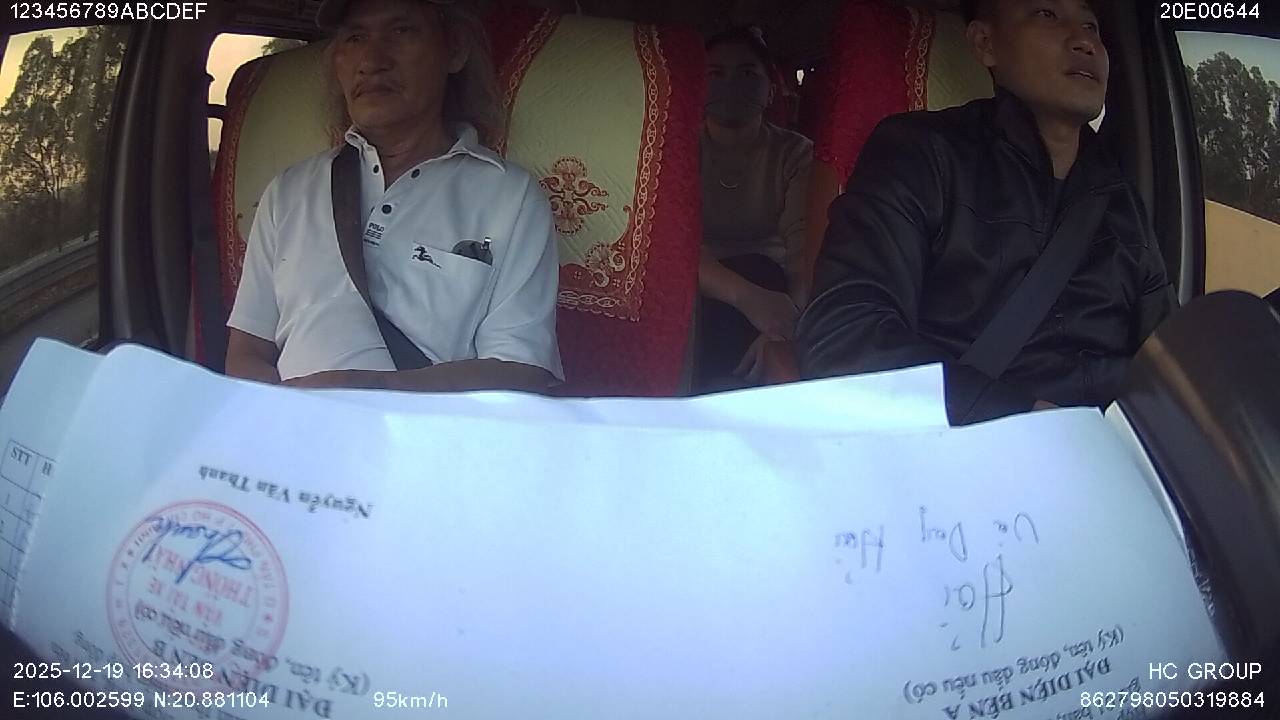 123456789ABCDEF
20E00644
POLO
STT
ĐẠI DIỆN BÊN A
(Ký tên, đóng dấu nếu có)
Hải
Vũ Duy Hải
ĐẠI DIỆN BÊN B
(Ký tên, đóng dấu nếu có)
VẬN TẢI XE
THỐNG NHẤT
Nguyễn Văn Thanh
2025-12-19 16:34:08
HC GROUP
E:106.002599 N:20.881104
95km/h
862798050319884